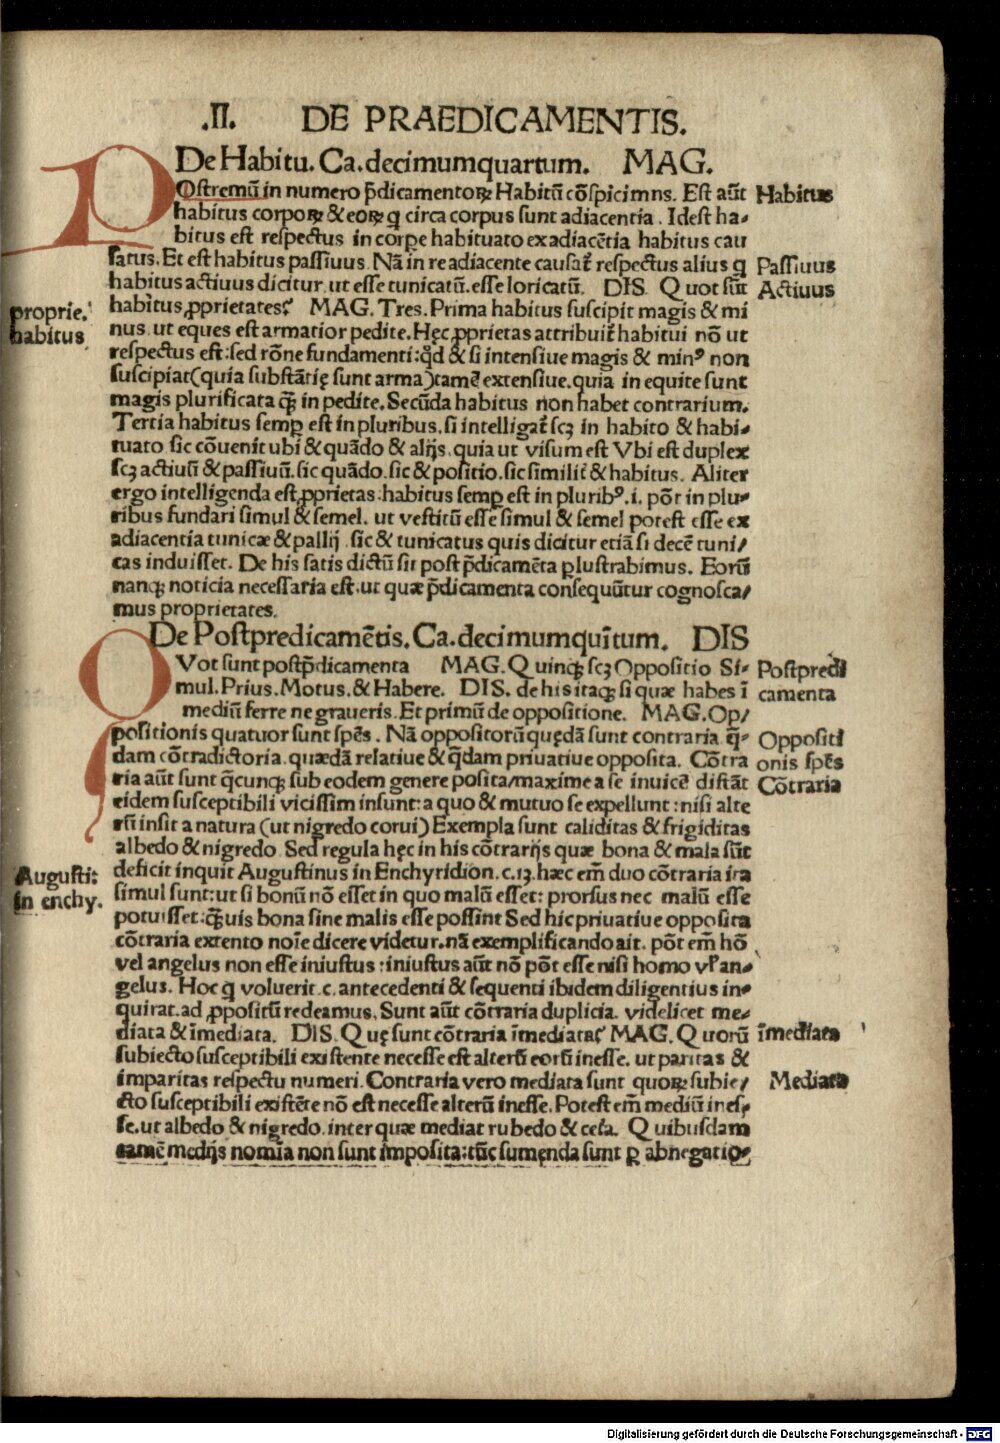 .II. DE PRAEDICAMENTIS.
De Habitu. Ca. decimumquartum. MAG.
POstremũ in numero p̃dicamentoꝝ Habitũ cõspicimns. Est aũt
Habitus
habitus corpoꝝ & eoꝝ q̃ circa corpus sunt adiacentia. Idest ha-
bitus est respectus in corꝑe habituato ex adiacẽtia habitus cau
satus. Et est habitus passiuus. Nã in re adiacente causat̃ respectus alius q̃
Passiuus
habitus actiuus dicitur. ut esse tunicatũ. esse loricatũ. DIS. Quot sũt
Actiuus
proprie.
habitus
habitus ꝓprietates? MAG. Tres. Prima habitus suscipit magis & mi
nus. ut eques est armatior pedite. Hęc ꝓprietas attribuit̃ habitui nõ ut
respectus est: sed rõne fundamenti: qd̃ & si intensiue magis & minꝰ non
suscipiat (quia substãtię sunt arma) tamẽ extensiue. quia in equite sunt
magis plurificata q̃ꝫ in pedite. Secũda habitus non habet contrarium.
Tertia habitus semꝑ est in pluribus. si intelligat̃ scꝫ in habito & habi-
tuato sic cõuenit ubi & quãdo & alijs. quia ut visum est Vbi est duplex
scꝫ actiuũ & passiuũ. sic quãdo. sic & positio. sic similit̃ & habitus. Aliter
ergo intelligenda est ꝓprietas: habitus semꝑ est in pluribꝰ. i. põt in plu-
ribus fundari simul & semel. ut vestitũ esse simul & semel potest esse ex
adiacentia tunicæ & pallij. sic & tunicatus quis dicitur etiã si decẽ tuni/
cas induisset. De his satis dictũ sit post p̃dicamẽta ꝑlustrabimus. Eorũ
nanqꝫ noticia necessaria est. ut quæ p̃dicamenta consequũtur cognosca/
mus proprietates.
De Postpredicamẽtis. Ca. decimumquĩtum. DIS
QVot sunt postp̃dicamenta MAG. Quinqꝫ scꝫ Oppositio Si-
Postpredi
mul. Prius. Motus. & Habere. DIS. de his itaqꝫ si quæ habes ĩ
camenta
mediũ ferre ne graueris. Et primũ de oppositione. MAG. Op/
positionis quatuor sunt spẽs. Nã oppositorũ quędã sunt contraria. q̃-
Oppositi
dam cõtradictoria. quædã relatiue & q̃dam priuatiue opposita. Cõtra
onis spẽs
ria aũt sunt q̃cunqꝫ sub eodem genere posita/maxime a se inuicẽ distãt
Cõtraria
eidem susceptibili vicissim insunt: a quo & mutuo se expellunt: nisi alte
rũ insit a natura (ut nigredo corui) Exempla sunt caliditas & frigiditas
albedo & nigredo. Sed regula hęc in his cõtrarijs quæ bona & mala sũt
Augusti:
in enchy.
deficit inquit Augustinus in Enchyridion. c. 13. hæc em̃ duo cõtraria ita
simul sunt: ut si bonũ nõ esset in quo malũ esset: prorsus nec malũ esse
potuisset: q̃ꝫuis bona sine malis esse possint Sed hic priuatiue opposita
cõtraria extento noĩe dicere videtur. nã exemplificando ait. põt em̃ hõ
vel angelus non esse iniustus: iniustus aũt nõ põt esse nisi homo vl̃ an-
gelus. Hoc q̃ voluerit. c. antecedenti & sequenti ibidem diligentius in-
quirat. ad ꝓpositũ redeamus. Sunt aũt cõtraria duplicia. videlicet me-
diata & ĩmediata. DIS. Quę sunt cõtraria ĩmediata? MAG. Quorũ
ĩmediata
subiecto susceptibili existente necesse est alterũ eorũ inesse. ut paritas &
imparitas respectu numeri. Contraria vero mediata sunt quoꝝ subie/
Mediata
cto susceptibili existẽte nõ est necesse alterũ inesse. Potest em̃ mediũ ines-
se. ut albedo & nigredo. inter quæ mediat rubedo & cęsa. Quibusdam
tamẽ medijs nomĩa non sunt imposita: tũc sumenda sunt ꝑ abnegatio-
Digitalisierung gefördert durch die Deutsche Forschungsgemeinschaft - DFG